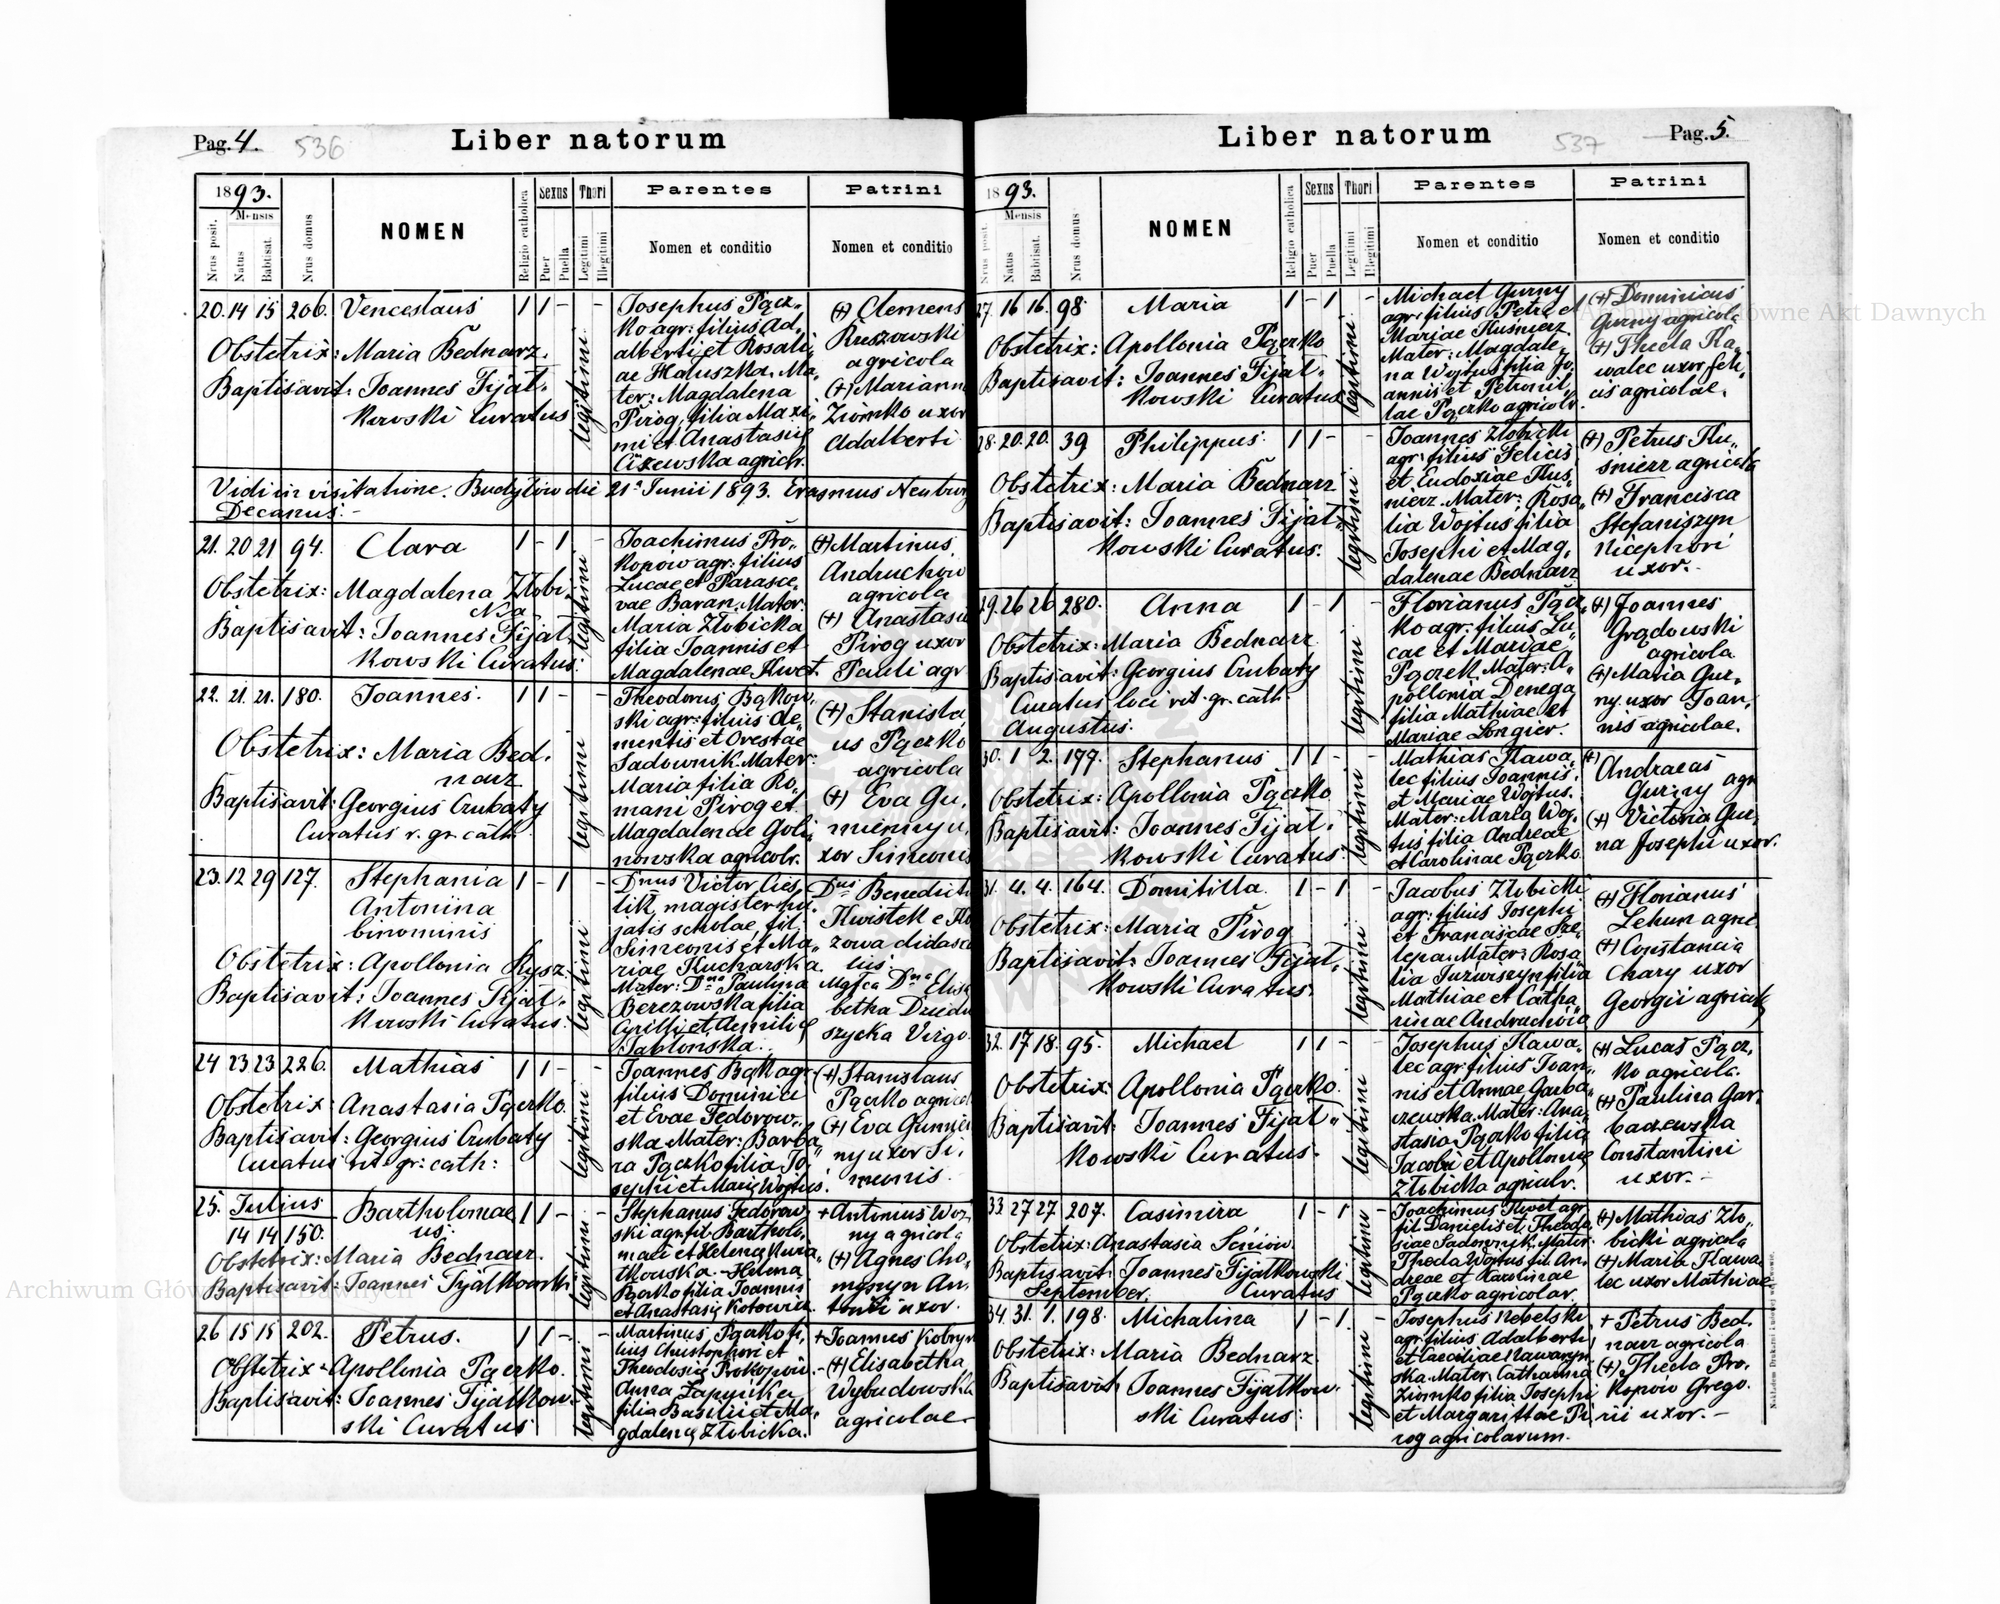 Pag. 4.
536
Liber natorum
1893.
Mensis
Nrus posit.
Natus
Babtisat.
Nrus domus
NOMEN
Religio catholica
Sexus
Puer
Puella
Thori
Legitimi
Illegitimi
Parentes
Nomen et conditio
Patrini
Nomen et conditio
20. 14 15 206. Venceslaus 1 1 - -
Obstetrix: Maria Bednarz.
Baptisavit: Joannes Fijał-
kowski Curatus
legitimi
Josephus Pącz-
ko agr: filius Ad,
alberti et Rosali,
ae Hałuszka. Ma,
ter: Magdalena
Pirog, filia Maxi,
mi et Anastasię
(+) Clemens
agricola
(+) Mariann
Ziomko uxor
Adalberti
Vidi in visitatione. Budyłów die 21a Junii 1893. Erasmus
Decanus.-
21. 20 21 94. Clara 1 - 1 -
Obstetrix: Magdalena Złobi,
Baptisavit: Joannes Fijał-
kowski Curatus:
legitimi
Joachimus Pro-
kopow agr: filius
Lucae et Parasce,
vae Baran. Mater:
Maria Złobicka
filia Joannis et
Magdalenae Kwet.
(+) Martinus
Andruchów
agricola
(+) Anastasia
Pirog uxor
Pauli agr
22. 21. 21. 180. Joannes. 1 1 - -
Obstetrix: Maria Bed,
narz
Baptisavit: Georgius Czubaty
Curatus r. gr. cath.
legitimi
Theodorus Bąkow,
ski agr: filius Cle,
mentis et Orestae
Sadownik. Mater:
Maria filia Ro,
mani Pirog et
Magdalenae Goli,
nowska agricolr.
(+) Stanisla,
us Pączko
agricola
(+) Eva Gu,
miennyu,
xor Simeonis
23. 12 29 127. Stephania 1 - 1 -
Antonina
binominis
Obstetrix: Apollonia
Baptisavit: Joannes Fijał-
kowski Curatus:
legitimi
Dnus Victor Cieś,
lik, magister hu,
jatis scholae, fil
Simeonis et Ma,
riae Kucharska.
Mater: Dna Paulina
Berezowska filia
Cyrilli et Aemilię
Jabłońska.
Dnus Benedictu
Kwistek e Ko
zowa didasca
lus
Dna Elisa
betha Dziedu
szycka Virgo.
24 23 23 226. Mathias 1 1 - -
Obstetrix: Anastasia Pączko.
Baptisavit: Georgius Czubaty
Curatus rit: gr: cath:
legitimi
Joannes Bąk agr:
filius Dominici
et Evae Fedorow,
ska. Mater: Barba,
ra Pączko filia Jo,
sephi et Marię Wojtus.
(+) Stanislaus
Pączko agricol
(+) Eva Gumien
ny uxor Si,
meonis.
25. Julius
14 14 150. Bartholomae 1 1 - -
us.
Obstetrix: Maria Bednarz.
Baptisavit: Joannes Fijałkowski
legitimi
Stephanus Fedorow
ski agr. fil. Bartholo,
maei et Helenę
Helena
filia Joannis
et Anastasię Kotowicz
+ Antonius Woź
ny agricola
(+) Agnes Cho,
An,
tonii uxor.
26 15 15 202. Petrus. 1 1 - -
Obstetrix - Apollonia Pączko.
Baptisavit: Joannes Fijałkow-
ski Curatus
legitimi
Martinus Pączko fi,
lius Christophori et
Theodosię Prokopów.-
Anna Łapyicka
filia Basilii et Ma,
gdalenę Złobicka.
+ Joannes
(+) Elisabetha
Wybudowska
agricolae
Liber natorum
537
Pag. 5.
1893.
Mensis
Nrus posit.
Natus
Babtisat.
Nrus domus
NOMEN
Religio catholica
Sexus
Puer
Puella
Thori
Legitimi
Illegitimi
Parentes
Nomen et conditio
Patrini
Nomen et conditio
27. 16 16. 98 Maria 1 - 1 -
Obstetrix: Apollonia Pączko
Baptisavit: Joannes Fijał-
kowski Curatus
legitimi
Michael Gurny
agr: filius Petri et
Mariae Kuśnierz
Mater: Magdale,
na Wojtus filia Jo,
annis et Petronil,
lae Pączko agricolr.
(+) Dominicus
Gurny agricola
(+) Thecla Ka,
walec uxor Feli,
cis agricolae.
28. 20. 20. 39 Philippus. 1 1 -
Obstetrix: Maria Bednarz
Baptisavit: Joannes Fijał-
kowski Curatus.
legitimi
Joannes Złobicki
agr: filius Felicis
et Eudoxiae Kuś,
nierz. Mater: Rosa,
lia Wojtus filia
Josephi et Mag,
dalenae Bednarz
(+) Petrus Ku,
śnierz agricola
(+) Francisca
Stefaniszyn
Nicephori
uxor.-
29. 26 26 280. Anna 1 - 1 -
Obstetrix: Maria Bednarz
Baptisavit: Georgius Czubaty
Curatus loci rit. gr. cath
Augustus.
legitimi
Florianus Pącz,
ko agr: filius Lu,
cae et Mariae
Pączek. Mater: A,
pollonia Denega
filia Mathiae et
Mariae Longier.
(+) Joannes
Grądowski
agricola
(+) Maria Gur,
ny uxor Joan,
nis agricolae.
30. 1 2. 177. Stephanus 1 1 -
Obstetrix: Apollonia Pączko
Baptisavit: Joannes Fijał-
kowski Curatus.
legitimi
Mathias Kawa,
lec filius Joannis
et Mariae Wojtus.
Mater: Maria Woj,
tus filia Andreae
et Carolinae Pączko
(+) Andraeas
Gurny agr
(+) Victoria Gur,
na Josephi uxor.
31. 4. 4. 164. Domitilla. 1 - 1 -
Obstetrix: Maria Pirog
Baptisavit: Joannes Fijał-
kowski Curatus.
legitimi
Jacobus Złobicki
agr: filius Josephi
et Franciscae Sze,
lepa. Mater: Rosa,
lia Jurwiszyn filia
Mathiae et Catha,
rinae Andruchów
(+) Florianus
Lehun agric.
(+) Constancia
Chary uxor
Georgii agricolę
32. 17 18. 95. Michael 1 1 - -
Obstetrix: Apollonia Pączko.
Baptisavit: Joannes Fijał-
kowski Curatus.
legitimi
Josephus Kawa,
lec agr: filius Joan,
nis et Annae Garba,
czewska. Mater: Ana,
stasia Pączko filia
Jacobi et Apolloniae
Złobicka agricolr.
(+) Lucas Pącz,
ko agricola.
(+) Paulina Gar,
baczewska
Constantini
uxor.-
33. 27 27. 207. Casimira 1 - 1 -
Obstetrix: Anastasia Seniów.
Baptisavit: Joannes Fijałkowski
September. Curatus
legitimi
Joachimus Kwet agr
fil. Danielis et Theodo,
siae Sadownyk. Mater
Thecla Wojtus fil. An,
dreae et Karolinae
Pączko agricolar.
(+) Mathias Zło,
bicki agricola
(+) Maria Kawa,
lec uxor Mathiae
34. 31. 1. 198. Michalina 1 - 1.
Obstetrix: Maria Bednarz.
Baptisavit: Joannes Fijałkow-
ski Curatus:
legitimi
Josephus Nebelski
agr. filius Adalberti
et Caeciliae Nawaryn,
ska. Mater: Catharina
Ziomko filia Josephi
et Margarittae Pi
rog agricolarum.
+ Petrus Bed,
narz agricola
(+) Thecla Pro,
kopów Grego.
rii uxor.-
Archiwum Główne Akt Dawnych
Archiwum Główne Akt Dawnych